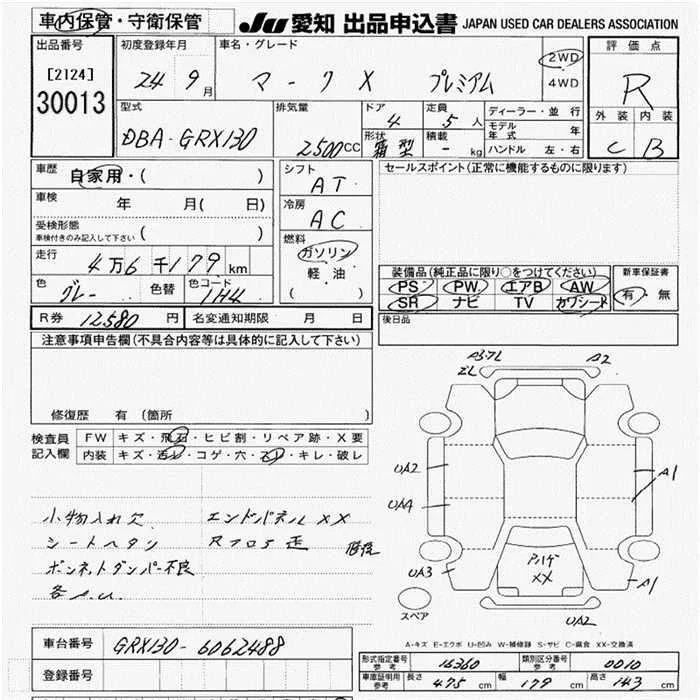 車内保管・守衛保管
JU 愛知 出品申込書 JAPAN USED CAR DEALERS ASSOCIATION
出品番号 初度登録年月 車名・グレード 2WD 評価点
[2124] 24 9月 マークX プレミアム 4WD R
30013 型式 排気量 ドア 4 定員 5人 ディーラー・並行 外装 内装
DBA-GRX130 2500cc 形状 箱型 積載 - kg モデル年式 年 C B
ハンドル 左・右
車歴 自家用・( ) シフト AT セールスポイント(正常に機能するものに限ります)
車検 年 月( 日) 冷房 AC
受検形態 車検付きのみ記入して下さい ( ) 燃料 ガソリン
走行 4万6千179km 軽油 装備品(純正品に限り○をつけてください) 新車保証書
色 グレー 色替 色コード 1H4 ( ) PS PW エアB AW 有・無
SR ナビ TV カワシート
R券 12580円 名変通知期限 月 日 後日品
注意事項申告欄(不具合内容等は具体的に記入して下さい)
A3.7L A2
ZL
修復歴 有 (箇所 )
検査員記入欄 FW キズ・飛石・ヒビ割・リペア跡・X要
内装 キズ・汚レ・コゲ・穴・スレ・キレ・破レ
UA2 A1
UA4
小物入れ欠 エンドパネルXX
シートヘタリ Rフロア歪 修復
ボンネットダンパー不良 アトハゲ XX
各A.U. UA3 A1
スペア UA2
A-キズ E-エクボ U-凹み W-補修跡 S-サビ C-腐食 XX-交換済
車台番号 GRX130-6062488
登録番号
形式指定番号 参考 16360 類別区分番号 参考 0010
車庫証明用 参考 長さ 475cm 幅 179cm 高さ 143cm